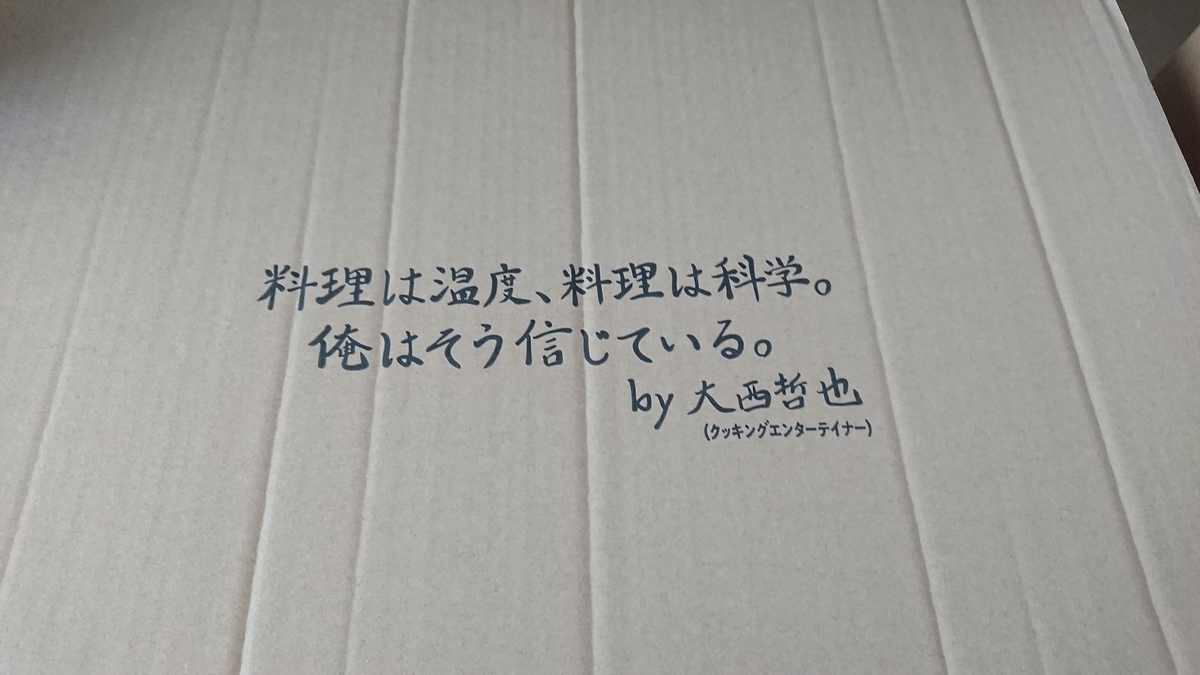 料理は温度、料理は科学。
俺はそう信じている。
by 大西哲也
(クッキングエンターテイナー)